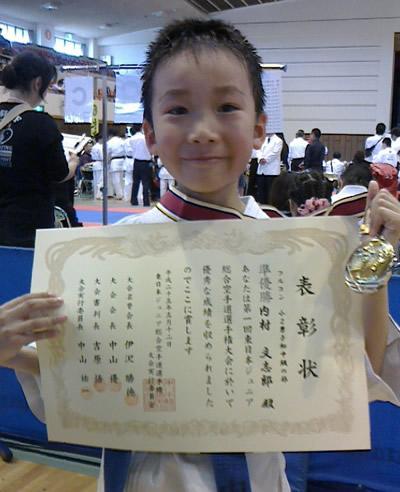 表彰状
フルコン 小二男子初中級の部
準優勝 内村 文志郎 殿
あなたは第一回東日本ジュニア
総合空手道選手権大会に於いて
優秀な成績を収められました
のでここに賞します
平成二十五年五月十二日
東日本ジュニア総合空手道選手権
大会実行委員会
大会名誉会長 伊沢 勝徳
大会会長 中山 優
大会審判長 吉原
大会実行委員長 中山 祐一
C